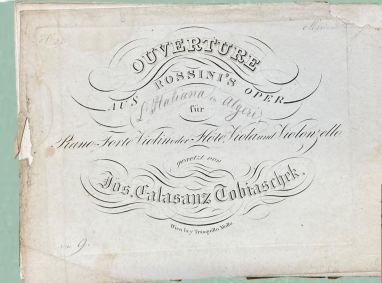 OUVERTURE
AUS ROSSINI'S OPER
L'Italiana in Algeri
für
Piano-Forte Violin oder Flöte, Viola und Violonzello
gesetzt von
Jos. Calasanz Tobiaschek.
Wien bey Tranquillo Mollo.
9.